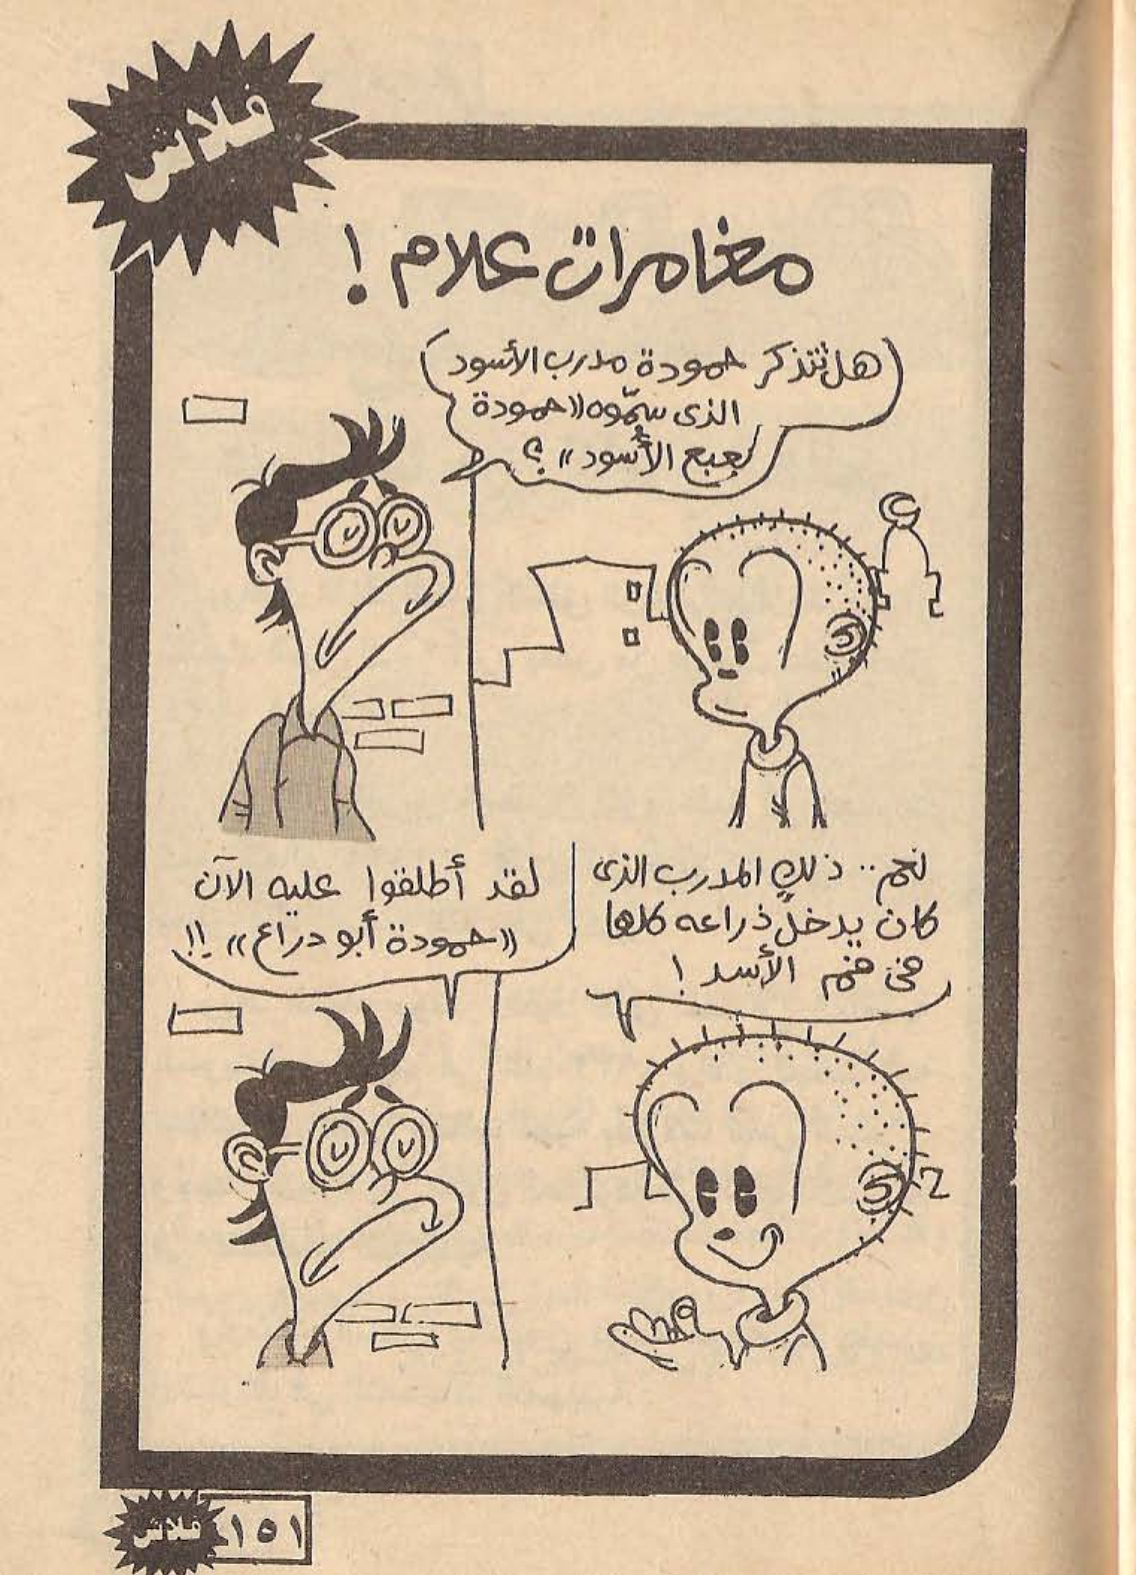 فلاش
مغامرات علام !
هل تتذكر حمودة مدرب الأسود
الذى سمّوه «حمودة
بعبع الأسود» ؟
نعم .. ذلك المدرب الذى
كان يدخل ذراعه كلها
فى فم الأسد !
لقد أطلقوا عليه الآن
«حمودة أبو دراع» !!
فلاش ١٥١